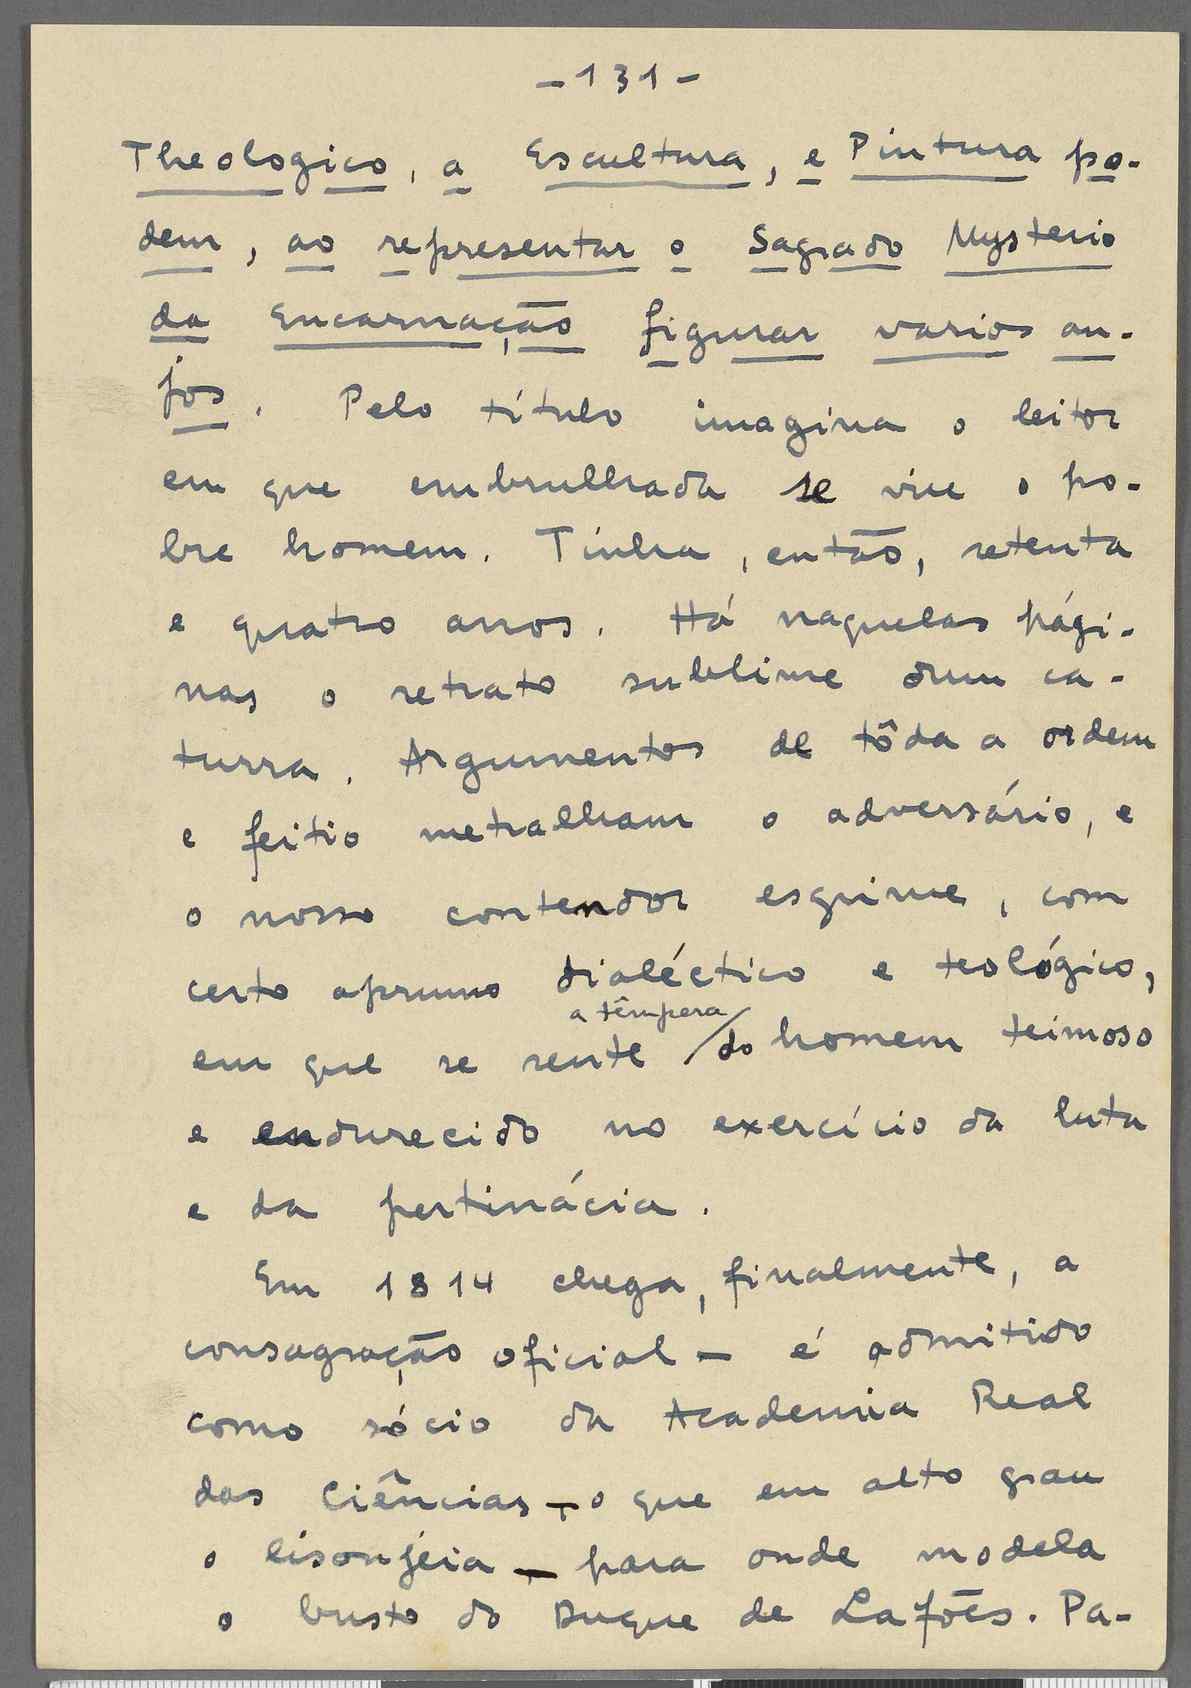 -131-
Theologico, a Escultura, e Pintura po-
dem, ao representar o Sagrado Mysterio
da Encarnação figurar varios an-
jos. Pelo título imagina o leitor
em que embrulhada se viu o po-
bre homem. Tinha, então, setenta
e quatro anos. Há naquelas pági-
nas o retrato sublime dum ca-
turra. Argumentos de tôda a ordem
e feitio metralham o adversário, e
o nosso contendor esgrime, com
certo aprumo dialéctico e teológico,
a têmpera
em que se sente do homem teimoso
e endurecido no exercício da luta
e da pertinácia.
Em 1814 chega, finalmente, a
consagração oficial - é admitido
como sócio da Academia Real
das Ciências - o que em alto grau
o lisonjeia - para onde modela
o busto do Duque de Lafões. Pa-